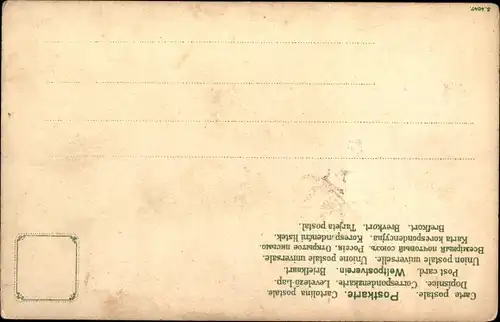 Carte postale. Postkarte. Cartolina postale.
Dopisnice. Correspondenzkarte. Levelező-Lap.
Post card. Weltpostverein. Briefkaart.
Union postale universelle. Unione postale universale.
Всемірный почтовый союзъ. Россія. Открытое письмо.
Karta korespondencyjna. Korespondenční listek.
Brefkort. Brevkort. Tarjeta postal.